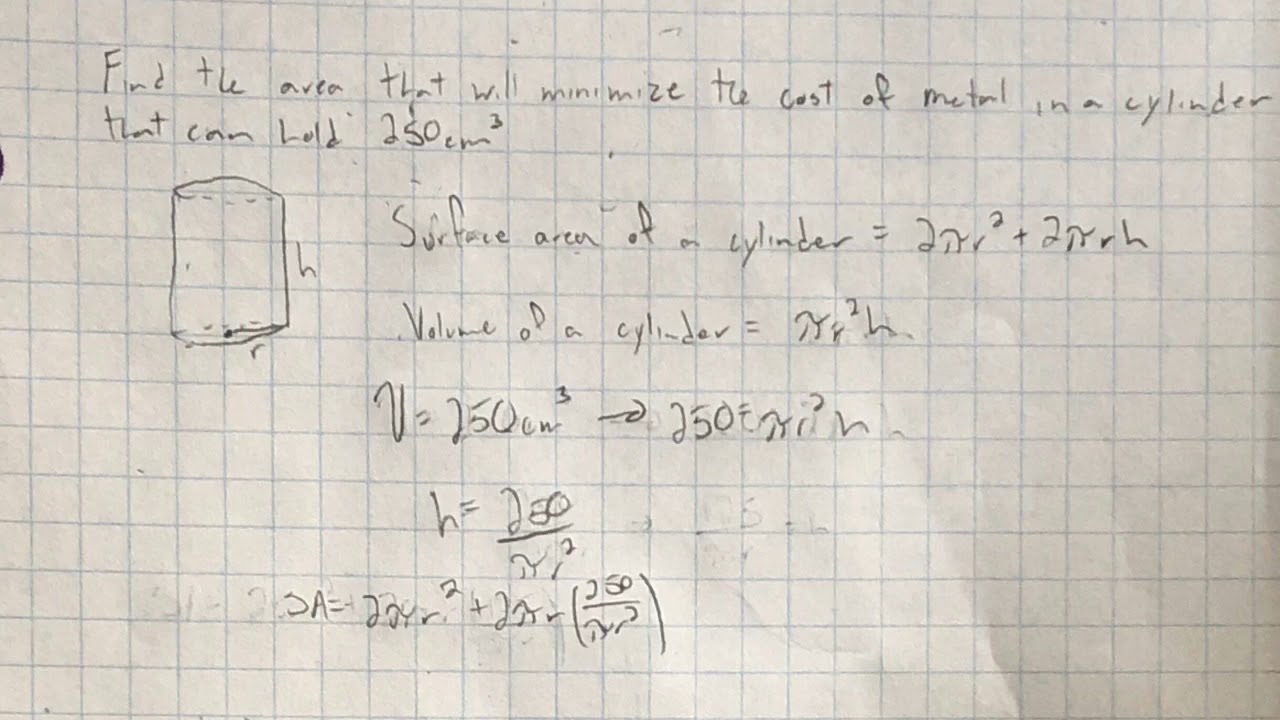 Find the area that will minimize the cost of metal in a cylinder
that can hold 250cm³
h
r
Surface area of a cylinder = 2πr² + 2πrh
Volume of a cylinder = πr²h
V = 250cm³ → 250 = πr²h
h = 250/πr²
SA = 2πr² + 2πr(250/πr²)